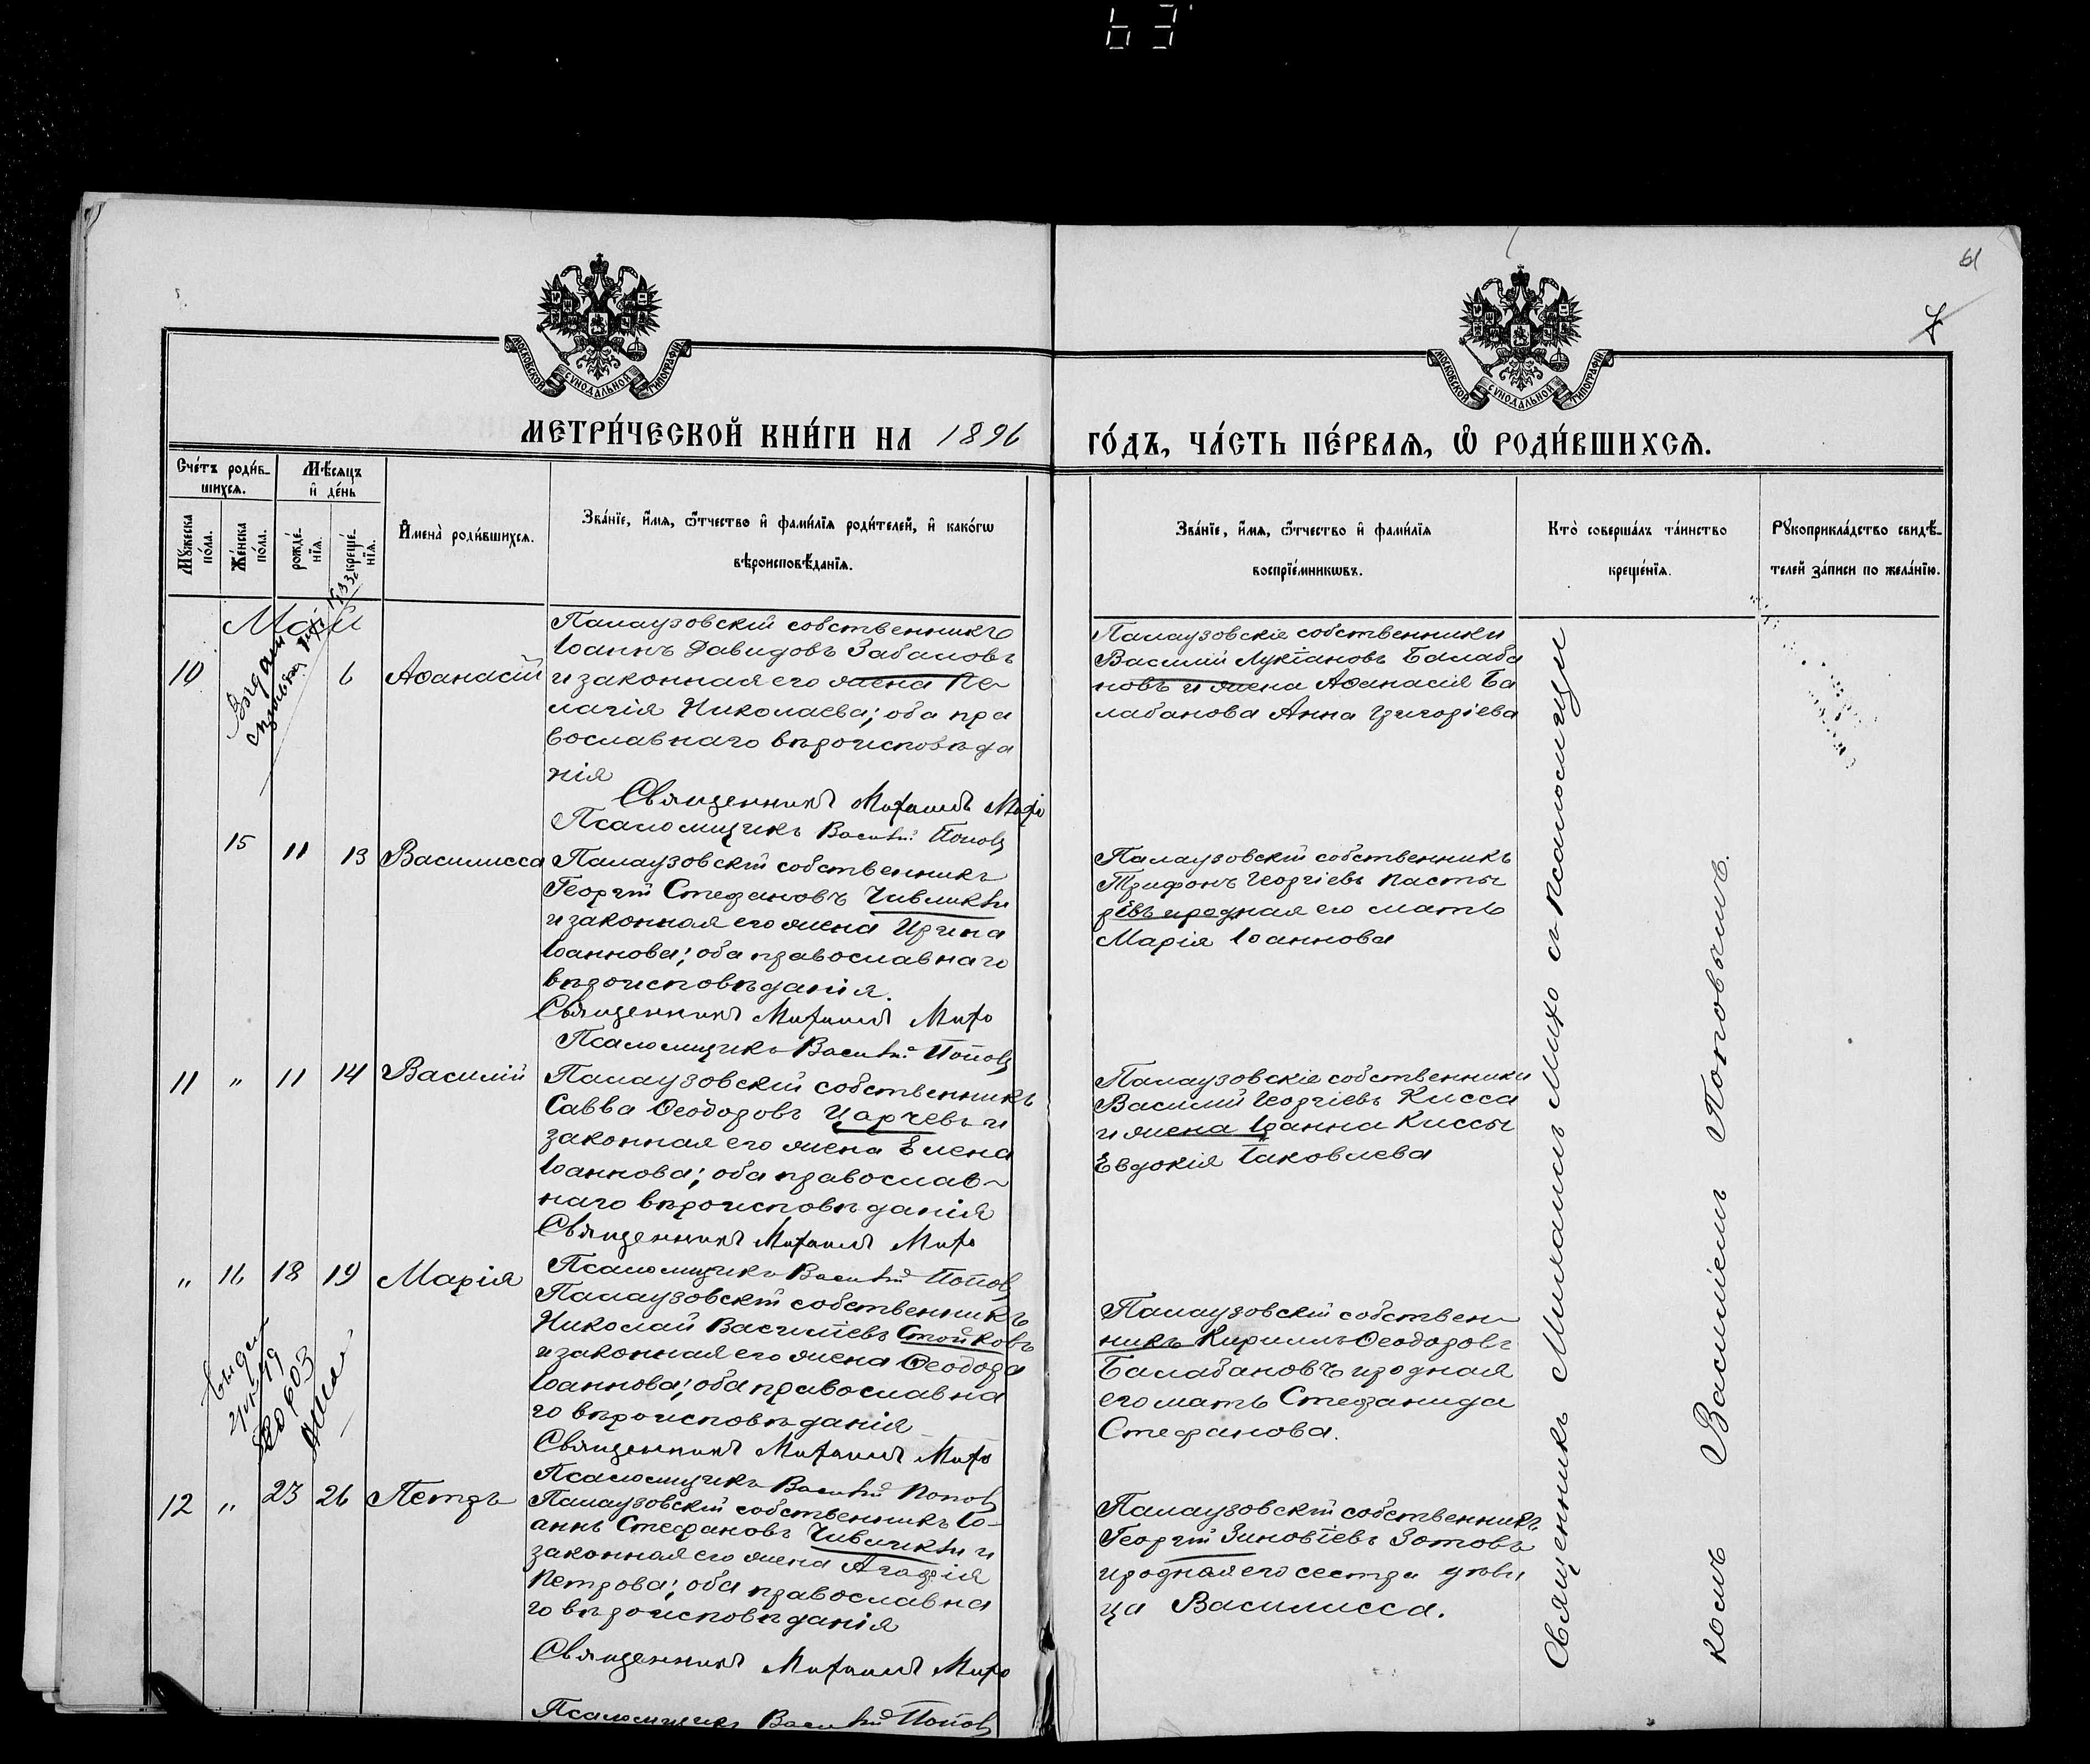 63
61
7
МОСКОВСКОЙ СѴНОДАЛЬНОЙ ТИПОГРАФІИ
МОСКОВСКОЙ СѴНОДАЛЬНОЙ ТИПОГРАФІИ
МЕТРИ́ЧЕСКОЙ КНИ́ГИ НА 1896
ГО́ДЪ, ЧА́СТЬ ПЕ́РВАѦ, Ѽ РОДИ́ВШИХСѦ.
Сче́тъ роди́в-
шихсѧ.
Мѣ́сѧцъ
и҆ де́нь
Мꙋ́жеска
по́ла.
Же́нска
по́ла.
рожде́-
нїѧ.
креще́-
нїѧ.
И҆мена̀ роди́вшихсѧ.
Зва́нїе, и҆́мѧ, ѻ҆́тчество и҆ фами́лїѧ роди́телей, и҆ како́гѡ
вѣроисповѣ́данїѧ.
Зва́нїе, и҆́мѧ, ѻ҆́тчество и҆ фами́лїѧ
воспрїе́мникѡвъ.
Кто̀ соверша́лъ та́инство
креще́нїѧ.
Рꙋкоприкла́дство свидѣ́-
телей за́писи по жела́нїю.
Май
10 6 Аѳанасій
Палаузовскій собственникъ
Іоаннъ Давидовъ Забановъ
и законная его жена Пе-
лагія Николаева; оба пра
вославнаго вѣроисповѣда
нія
Священникъ Михаилъ Михо
Псаломщикъ Василій Поповъ
Палаузовскіе собственники
Василий Лукіановъ Балаба
новъ и жена Аѳанасія Ба
лабанова Анна Григоріева
15 11 13 Василисса
Палаузовскій собственникъ
Георгій Стефановъ Чивликли
и законная его жена Ирина
Іоаннова; оба православнаго
вѣроисповѣданія.
Священникъ Михаилъ Михо
Псаломщикъ Василій Поповъ
Палаузовскій собственникъ
Трифонъ Георгіевъ Пасты
ревъ и родная его мать
Марія Іоаннова
11 " 11 14 Василій
Палаузовскій собственникъ
Савва Ѳеодоровъ Царчевъ и
законная его жена Елена
Іоаннова; оба православ-
наго вѣроисповѣданія
Священникъ Михаилъ Михо
Псаломщикъ Василій Поповъ
Палаузовскіе собственники
Василий Георгіевъ Кисса
и жена Іоанна Киссы
Евдокія Іаковлева
" 16 18 19 Марія
Палаузовскій собственникъ
Николай Василіевъ Стойковъ
и законная его жена Ѳеодора
Іоаннова; оба православна
го вѣроисповѣданія
Священникъ Михаилъ Михо
Псаломщикъ Василій Поповъ
Палаузовскій собствен-
никъ Кириллъ Ѳеодоровъ
Балабановъ и родная
его мать Стефанида
Стефанова.
12 " 23 26 Петръ
Палаузовскій собственникъ Іо-
аннъ Стефановъ Чивликли и
законная его жена Агафія
Петрова; оба православна
го вѣроисповѣданія
Священникъ Михаилъ Михо
Псаломщикъ Василій Поповъ
Палаузовскій собственникъ
Георгій Зиновіевъ Зотовъ
и родная его сестра дѣви
ца Василисса.
Священникъ Михаилъ Михо съ псаломщи
комъ Василіемъ Поповымъ.